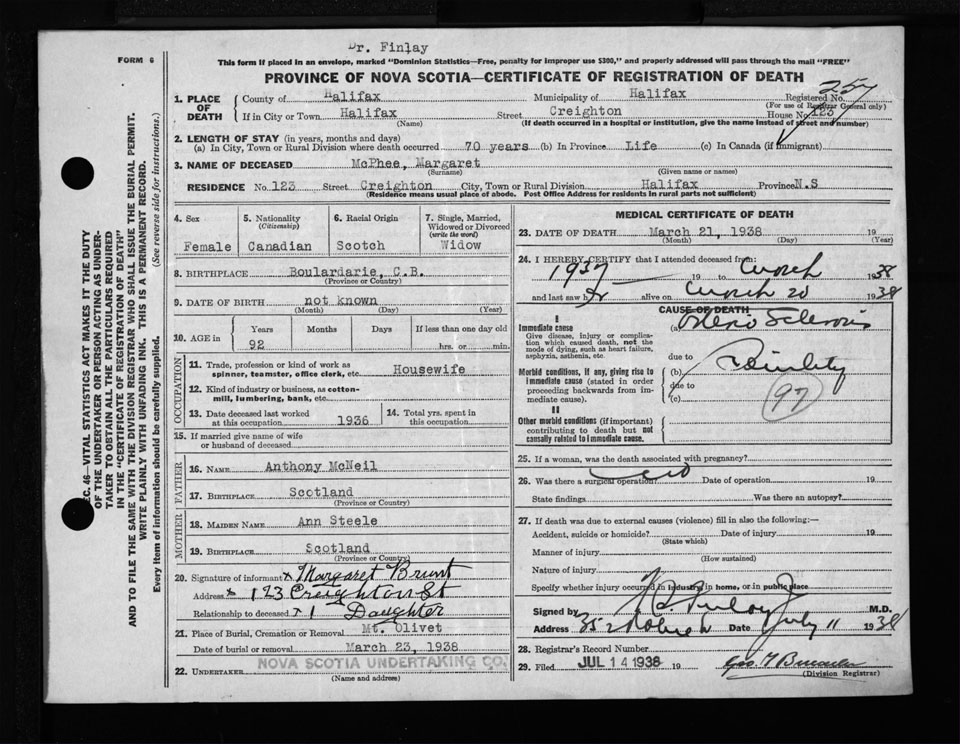 Dr. Finlay
FORM 6
This form if placed in an envelope, marked "Dominion Statistics—Free, penalty for improper use $300," and properly addressed will pass through the mail "FREE"
PROVINCE OF NOVA SCOTIA—CERTIFICATE OF REGISTRATION OF DEATH
257
1. PLACE OF DEATH
County of Halifax Municipality of Halifax Registered No.
(For use of Registrar General only)
If in City or Town Halifax Street Creighton House No. 123
(Name) (If death occurred in a hospital or institution, give the name instead of street and number)
2. LENGTH OF STAY (in years, months and days)
(a) In City, Town or Rural Division where death occurred 70 years (b) In Province Life (c) In Canada (if immigrant)
3. NAME OF DECEASED McPhee, Margaret
(Surname) (Given name or names)
RESIDENCE No. 123 Street Creighton City, Town or Rural Division Halifax Province N.S
(Residence means usual place of abode. Post Office Address for residents in rural parts not sufficient)
4. Sex
Female
5. Nationality
(Citizenship)
Canadian
6. Racial Origin
Scotch
7. Single, Married, Widowed or Divorced
(write the word)
Widow
8. BIRTHPLACE Boulardarie, C.B.
(Province or Country)
9. DATE OF BIRTH not known
(Month) (Day) (Year)
10. AGE in
Years Months Days If less than one day old
92 hrs. or min.
OCCUPATION
11. Trade, profession or kind of work as
spinner, teamster, office clerk, etc. Housewife
12. Kind of industry or business, as cotton-
mill, lumbering, bank, etc.
13. Date deceased last worked
at this occupation 1936
14. Total yrs. spent in
this occupation
15. If married give name of wife
or husband of deceased
FATHER
16. NAME Anthony McNeil
17. BIRTHPLACE Scotland
(Province or Country)
MOTHER
18. MAIDEN NAME Ann Steele
19. BIRTHPLACE Scotland
(Province or Country)
20. Signature of informant x Margaret Brunt
Address x 123 Creighton St
Relationship to deceased x 1 Daughter
21. Place of Burial, Cremation or Removal Mt. Olivet
Date of burial or removal March 23, 1938
22. UNDERTAKER NOVA SCOTIA UNDERTAKING CO.
(Name and address)
MEDICAL CERTIFICATE OF DEATH
23. DATE OF DEATH March 21, 1938 19
(Month) (Day) (Year)
24. I HEREBY CERTIFY that I attended deceased from:
1937 19 to March 1938
and last saw h er alive on March 20 1938
CAUSE OF DEATH
I
Immediate cause
Give disease, injury or complica-
tion which caused death, not the
mode of dying, such as heart failure,
asphyxia, asthenia, etc.
(a) Arterio Sclerosis
due to
Morbid conditions, if any, giving rise to
immediate cause (stated in order
proceeding backwards from im-
mediate cause).
(b)
due to
(c)
97
II
Other morbid conditions (if important)
contributing to death but not
causally related to immediate cause.
25. If a woman, was the death associated with pregnancy?
26. Was there a surgical operation? Date of operation 19
State findings Was there an autopsy?
27. If death was due to external causes (violence) fill in also the following:
Accident, suicide or homicide? Date of injury 19
(State which)
Manner of injury
(How sustained)
Nature of injury
Specify whether injury occurred in industry, in home, or in public place
Signed by Finlay M.D.
Address Date July 11 1938
28. Registrar's Record Number
29. Filed JUL 14 1938 19
(Division Registrar)
SEC. 46—VITAL STATISTICS ACT MAKES IT THE DUTY
OF THE UNDERTAKER OR PERSON ACTING AS UNDER-
TAKER TO OBTAIN ALL THE PARTICULARS REQUIRED
IN THE "CERTIFICATE OF REGISTRATION OF DEATH"
AND TO FILE THE SAME WITH THE DIVISION REGISTRAR WHO SHALL ISSUE THE BURIAL PERMIT.
WRITE PLAINLY WITH UNFADING INK. THIS IS A PERMANENT RECORD.
Every item of information should be carefully supplied. (See reverse side for instructions.)